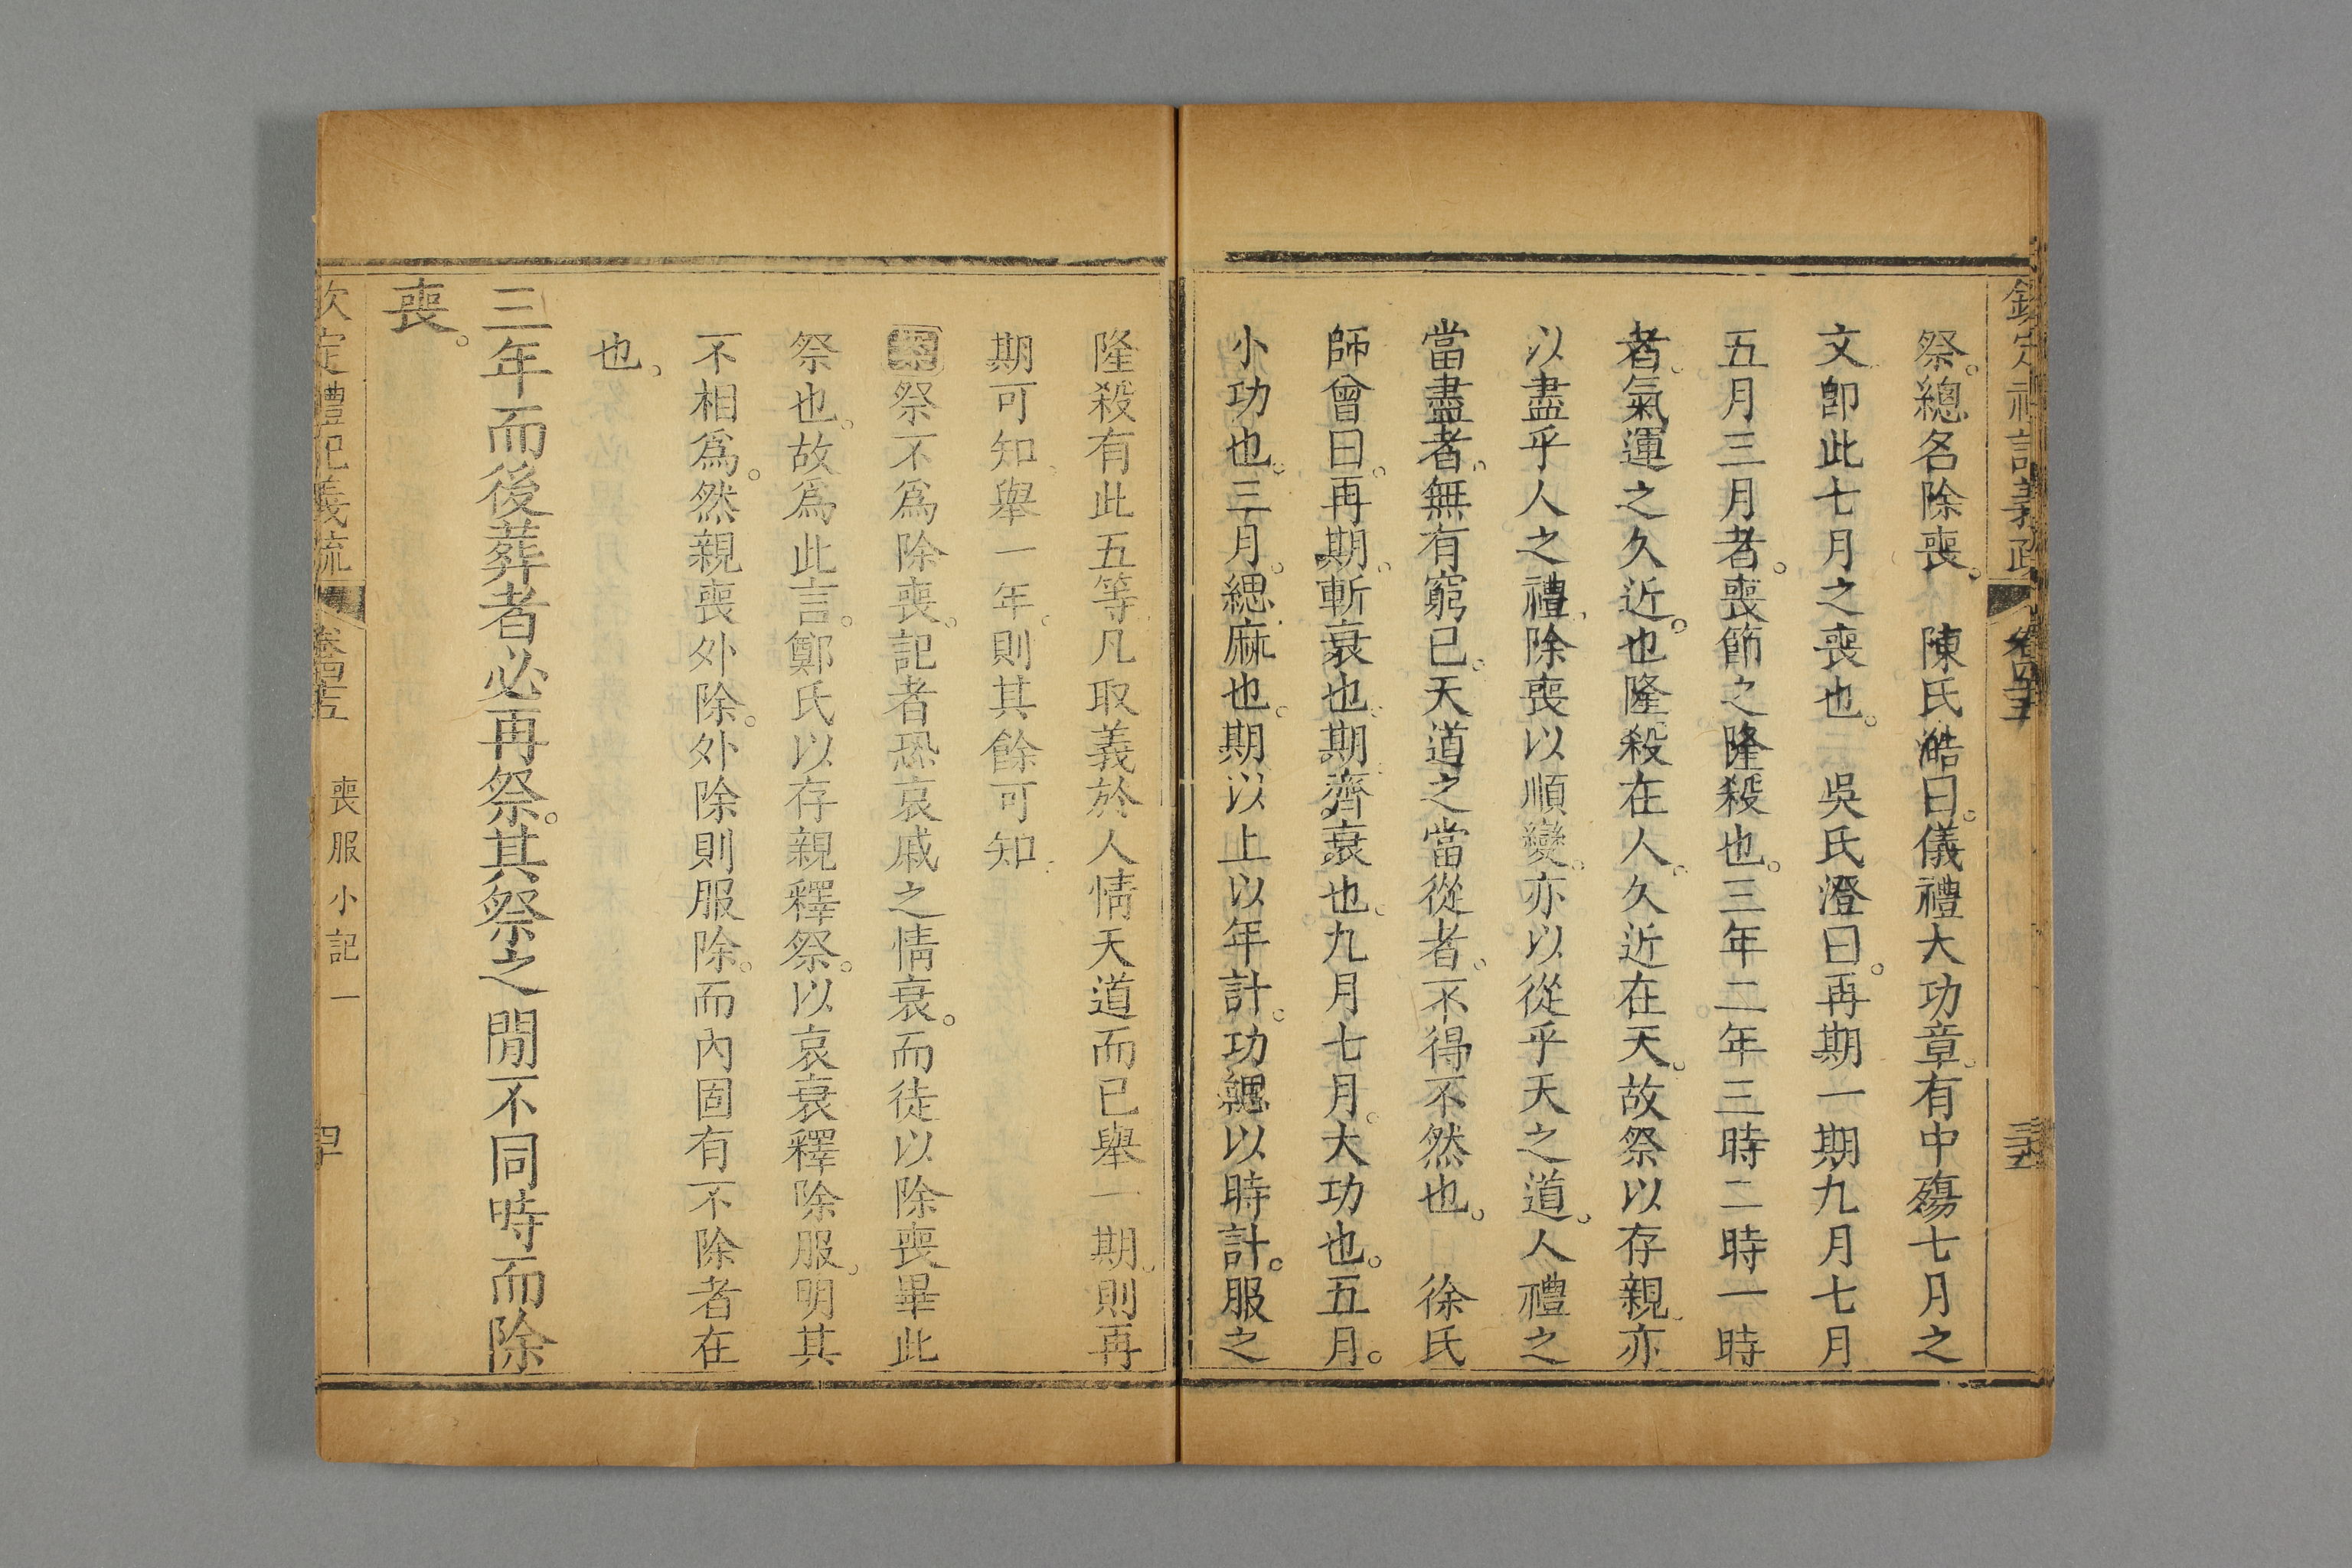 欽定禮記義疏 卷四十五 三十九
祭。總名除喪。 陳氏澔曰。儀禮大功章。有中殤七月之
文卽此七月之喪也。 吳氏澄曰。再期一期九月七月
五月三月者。喪節之隆殺也。三年二年三時二時一時
者。氣運之久近。也隆殺在人。久近在天。故祭以存親。亦
以盡乎人之禮。除喪以順變。亦以從乎天之道。人禮之
當盡者。無有窮已。天道之當從者。不得不然也。 徐氏
師曾曰。再期。斬衰也。期。齊衰也。九月七月。大功也。五月。
小功也。三月。緦麻也。期以上以年計。功緦以時計。服之
隆殺有此五等凡取義於人情天道而已舉一期。則再
期可知。舉一年。則其餘可知。
祭不爲除喪。記者恐哀戚之情衰。而徒以除喪畢此
祭也。故爲此言。鄭氏以存親釋祭。以哀衰釋除服。明其
不相爲。然親喪外除。外除則服除。而內固有不除者在
也。
三年而後葬者必再祭。其祭之閒不同時而除
喪。
欽定禮記義疏 卷四十五 喪服小記一 四十